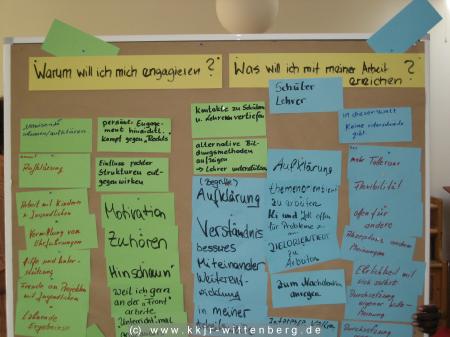 Warum will ich mich engagieren?
Was will ich mit meiner Arbeit
erreichen?
Aufklärung
Arbeit mit Kindern
Jugendlichen
Vermittlung von
Lohnende
Ergebnisse
persönl. Engage-
ment hinsichtl.
Kampf gegen "Rechts"
Einfluss rechter
Strukturen ent-
gegenwirken
Motivation
Zuhören
Hinschaun
Weil ich gern
an der "Front"
arbeite.
Kontakte zu Schülern
u. Lehrern vertiefen
alternative Bil-
dungsmethoden
aufzeigen
→ Lehrer unterstützen
(Begriffe)
Aufklärung
Verständnis
bessues
Miteinander
Weiterent-
wicklung
in meiner
Schüler
Lehrer
Aufklärung
themenorientiert
zu arbeiten
für Probleme
ZIELORIENTIERT
zu
Arbeiten
zum Nachdenken
anregen
in dieser Welt
Keine unterschiede
gibt.
mehr Toleranz
Flexibilität
offen für
andere
Akzeptanz anderer
Meinungen
Ehrlichkeit mit
sich selbst
Durchsetzung
eigener
Meinung
Durchsetzung
© www.kkjr-wittenberg.de